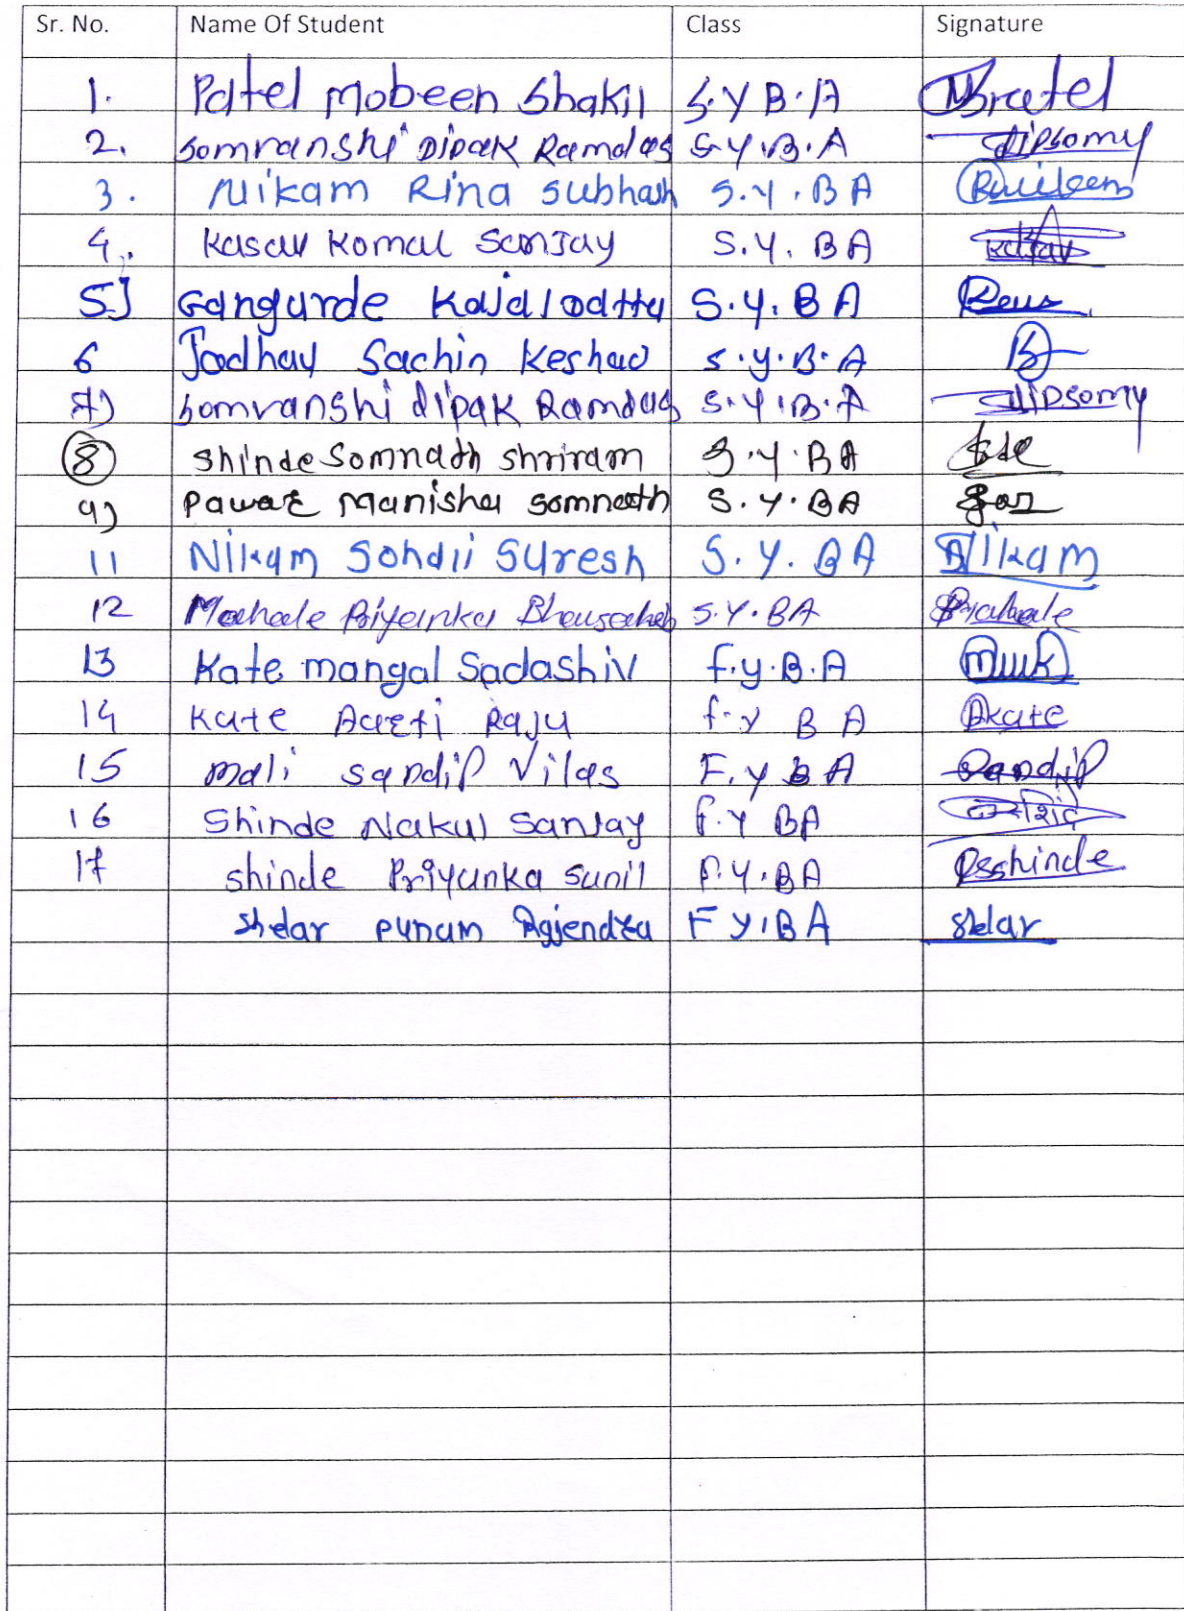 Sr. No. Name Of Student Class Signature
1. Patel Mobeen Shakil S.Y B.A Patel
2. Somvanshi Dipak Ramdas S.Y.B.A dipsomy
3. Nikam Rina Subhash S.Y.BA
4. Kasav Komal Sanjay S.Y.BA
5] Gangurde Kajal Dattu S.Y.BA
6 Jadhav Sachin Keshav S.Y.B.A
7) Somvanshi dipak Ramdas S.Y.B.A dipsomy
8 Shinde Somnath Shriram S.Y.BA
9) Pawar Manisha Somnath S.Y.BA
11 Nikam Sonali Suresh S.Y.BA Nikam
12 Mahale Priyanka Bhausaheb S.Y.BA
13 Kate mangal Sadashiv f.y.B.A
14 Kate Aarti Raju f.y B A Akate
15 mali sandip Vilas F.Y B A Sandip
16 Shinde Nakul Sanjay F.Y BA
17 shinde Priyanka sunil F.Y.BA Psshinde
shelar punam Rajendra F Y.BA shelar